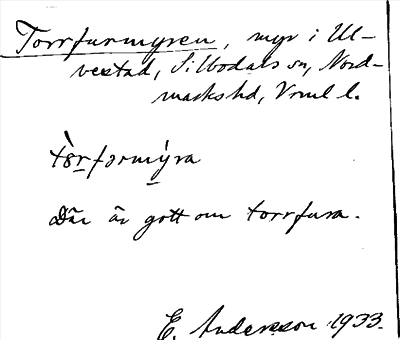 Torrfurmyren, myr i Ul-
vestad, Silbodals sn, Nord-
marks hd, Vrml l.
tòrfərmýra
Där är gott om torrfura.
E. Andersson 1933.